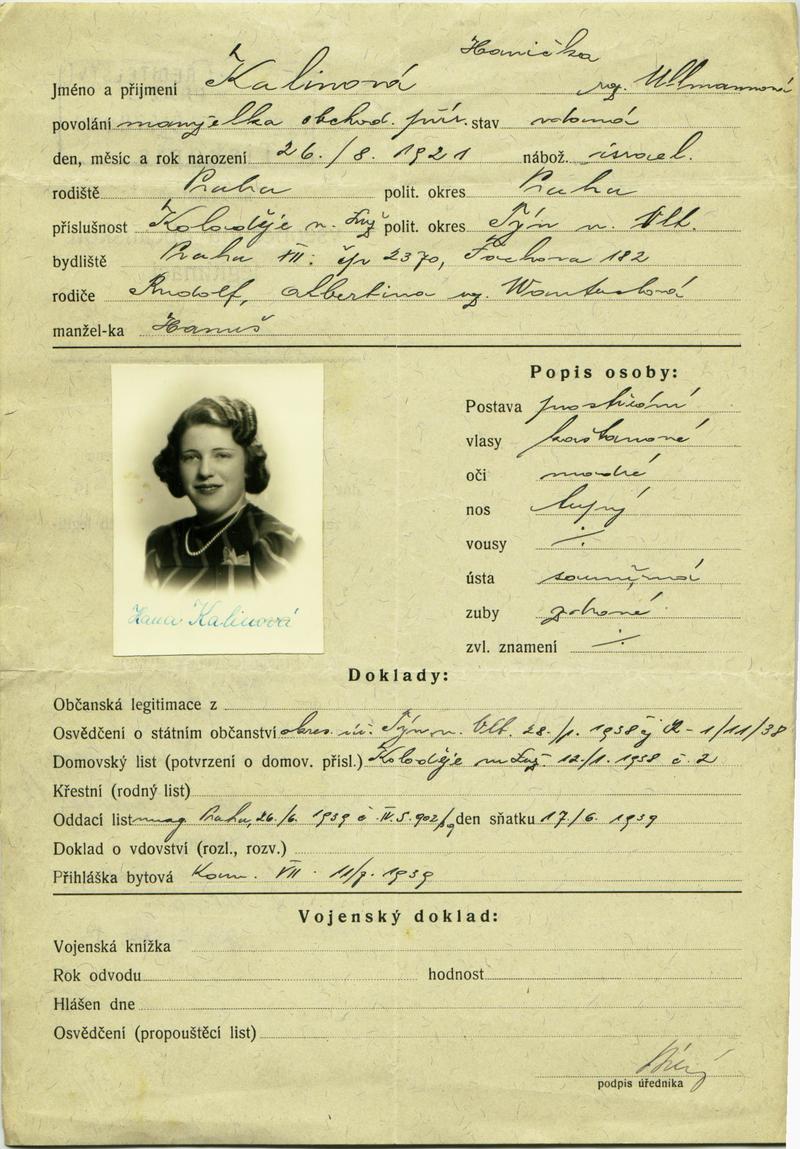 Hanička
Jméno a příjmení Kalinová roz. Ullmannová
povolání manželka obchod. přír. stav vdaná
den, měsíc a rok narození 26./8. 1921 nábož. israel.
rodiště Praha polit. okres Praha
příslušnost Koloděje n. Luž polit. okres Týn n. Vlt.
bydliště Praha VII. čp 2370, Fochova 182
rodiče Rudolf, Albertina roz.
manžel-ka Hanuš
Popis osoby:
Postava prostřední
vlasy kaštanové
oči modré
nos tupý
vousy ./.
ústa souměrná
zuby zdravé
zvl. znamení ./.
Hana Kalinová
Doklady:
Občanská legitimace z
Osvědčení o státním občanství okres. úř. Týn n. Vlt. 28./1. 1938 čj - 1/11/38
Domovský list (potvrzení o domov. přísl.) Koloděje n Luž 12/1. 1938 č. 2
Křestní (rodný list)
Oddací list mag. Praha, 26./6. 1939 č IV.S. 902/39 den sňatku 17./6. 1939
Doklad o vdovství (rozl., rozv.)
Přihláška bytová Kom. VII. 11/7. 1939
Vojenský doklad:
Vojenská knížka
Rok odvodu hodnost
Hlášen dne
Osvědčení (propouštěcí list)
podpis úředníka